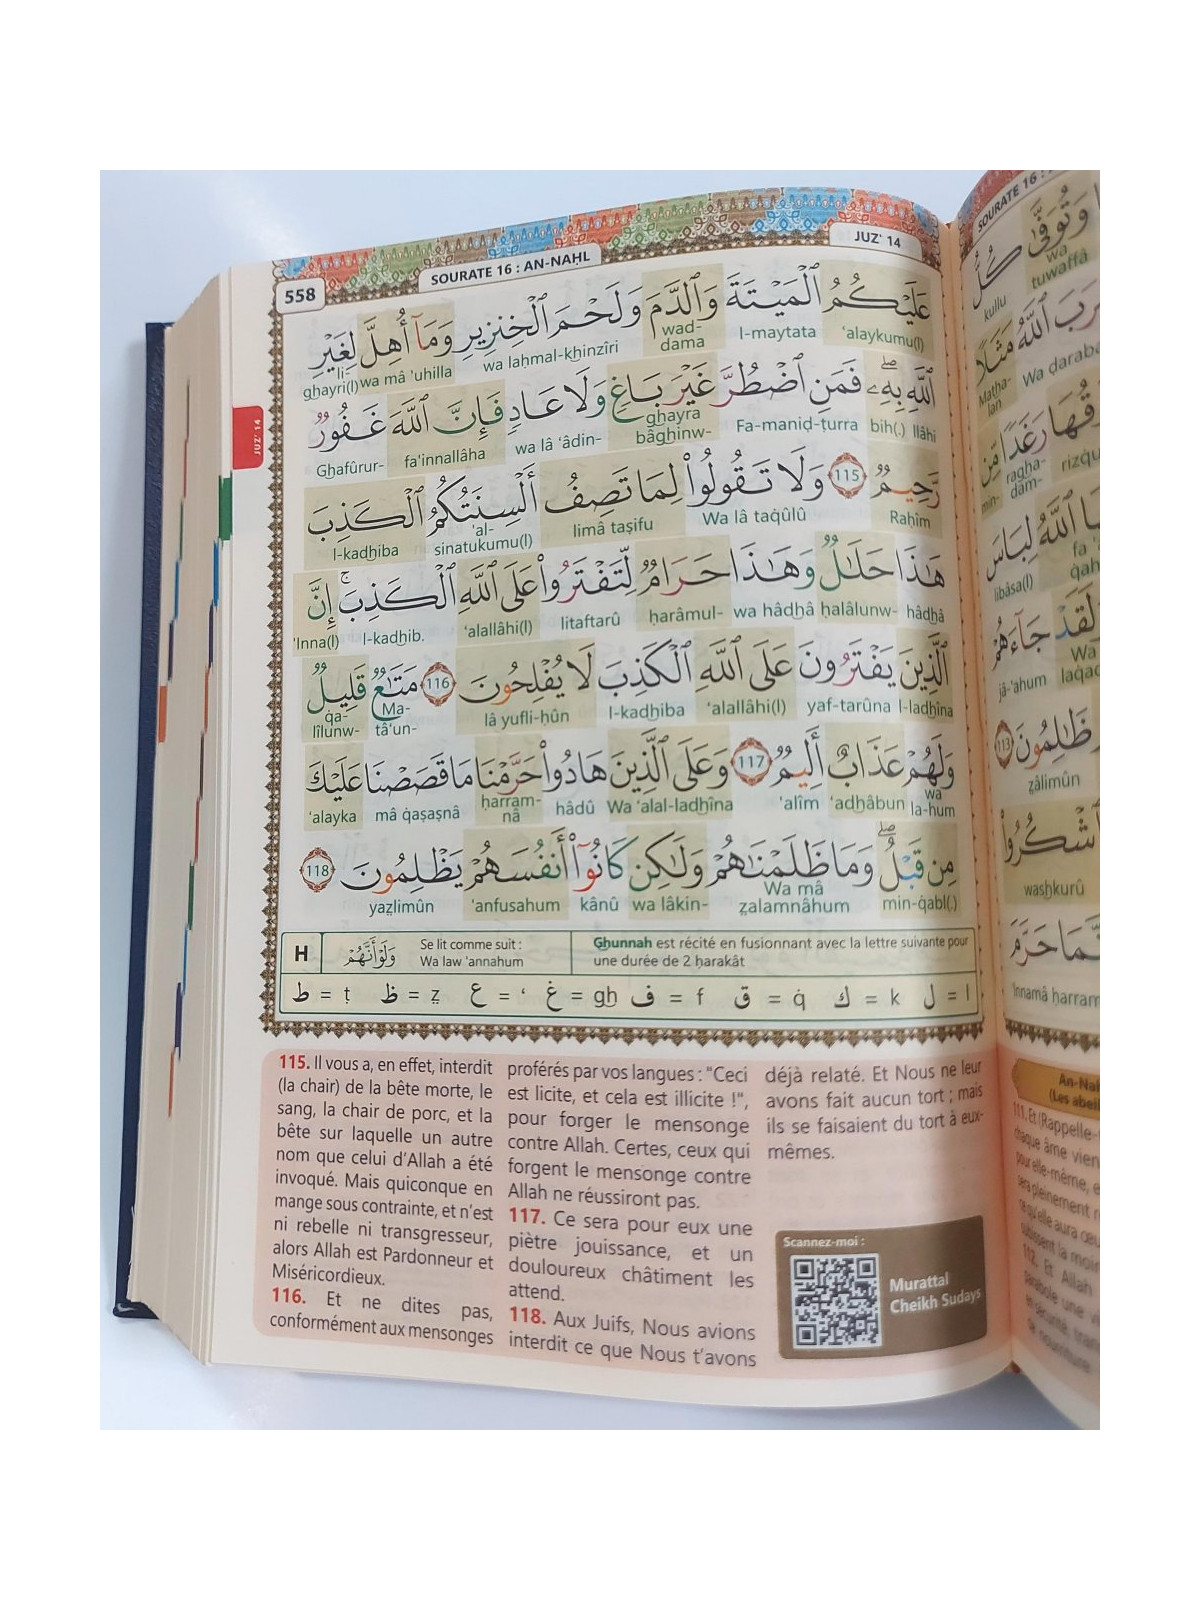 558
SOURATE 16 : AN-NAḤL
JUZ' 14
عَلَيْكُمُ الْمَيْتَةَ وَالدَّمَ وَلَحْمَ الْخِنزِيرِ وَمَآ أُهِلَّ لِغَيْرِ
'alaykumu(l) l-maytata wad-dama wa laḥmal-khinzîri wa mâ 'uhilla li-ghayri(l)
اللَّهِ بِهِۦۖ فَمَنِ اضْطُرَّ غَيْرَ بَاغٍ وَلَا عَادٍ فَإِنَّ اللَّهَ غَفُورٌ
llâhi bih(.) Fa-maniḍ-ṭurra ghayra bâghinw- wa lâ 'âdin- fa'innallâha Ghafûrur-
رَّحِيمٌ 115 وَلَا تَقُولُوا۟ لِمَا تَصِفُ أَلْسِنَتُكُمُ الْكَذِبَ
Raḥîm Wa lâ taq̇ûlû limâ taṣifu 'al-sinatukumu(l) l-kadhiba
هَٰذَا حَلَٰلٌ وَهَٰذَا حَرَامٌ لِّتَفْتَرُوا۟ عَلَى اللَّهِ الْكَذِبَۚ إِنَّ
hâdhâ ḥalâlunw- wa hâdhâ ḥarâmul- litaftarû 'alallâhi(l) l-kadhib. 'Inna(l)
الَّذِينَ يَفْتَرُونَ عَلَى اللَّهِ الْكَذِبَ لَا يُفْلِحُونَ 116 مَتَٰعٌ قَلِيلٌ
l-ladhîna yaf-tarûna 'alallâhi(l) l-kadhiba lâ yufli-ḥûn Ma-tâ'un- q̇a-lîlunw-
وَلَهُمْ عَذَابٌ أَلِيمٌ 117 وَعَلَى الَّذِينَ هَادُوا۟ حَرَّمْنَا مَا قَصَصْنَا عَلَيْكَ
wa la-hum 'adhâbun 'alîm Wa 'alal-ladhîna hâdû ḥarram-nâ mâ q̇aṣaṣnâ 'alayka
مِن قَبْلُۖ وَمَا ظَلَمْنَٰهُمْ وَلَٰكِن كَانُوٓا۟ أَنفُسَهُمْ يَظْلِمُونَ 118
min-q̇abl(.) Wa mâ ẓalamnâhum wa lâkin- kânû 'anfusahum yaẓlimûn
H وَلَوْ أَنَّهُمْ Se lit comme suit : Wa law 'annahum
Ghunnah est récité en fusionnant avec la lettre suivante pour
une durée de 2 ḥarakât
ط = ṭ ظ = ẓ ع = ‘ غ = gh ف = f ق = q̇ ك = k ل = l
115. Il vous a, en effet, interdit
(la chair) de la bête morte, le
sang, la chair de porc, et la
bête sur laquelle un autre
nom que celui d'Allah a été
invoqué. Mais quiconque en
mange sous contrainte, et n'est
ni rebelle ni transgresseur,
alors Allah est Pardonneur et
Miséricordieux.
116. Et ne dites pas,
conformément aux mensonges
proférés par vos langues : "Ceci
est licite, et cela est illicite !",
pour forger le mensonge
contre Allah. Certes, ceux qui
forgent le mensonge contre
Allah ne réussiront pas.
117. Ce sera pour eux une
piètre jouissance, et un
douloureux châtiment les
attend.
118. Aux Juifs, Nous avions
interdit ce que Nous t'avons
déjà relaté. Et Nous ne leur
avons fait aucun tort ; mais
ils se faisaient du tort à eux-
mêmes.
Scannez-moi :
Murattal
Cheikh Sudays
JUZ' 14
SOURATE 16 :
وَتُوَفَّىٰ كُلُّ
wa tuwaffâ kullu
اللَّهُ مَثَلًا
Wa ḍaraba Matha-lan
رَغَدًا مِّن
ragha-dam- min-
اللَّهُ لِبَاسَ
libâsa(l)
لَقَدْ جَآءَهُمْ
Wa laqad jâ-'ahum
ظَٰلِمُونَ 113
ẓâlimûn
washkurû
'innamâ ḥarram